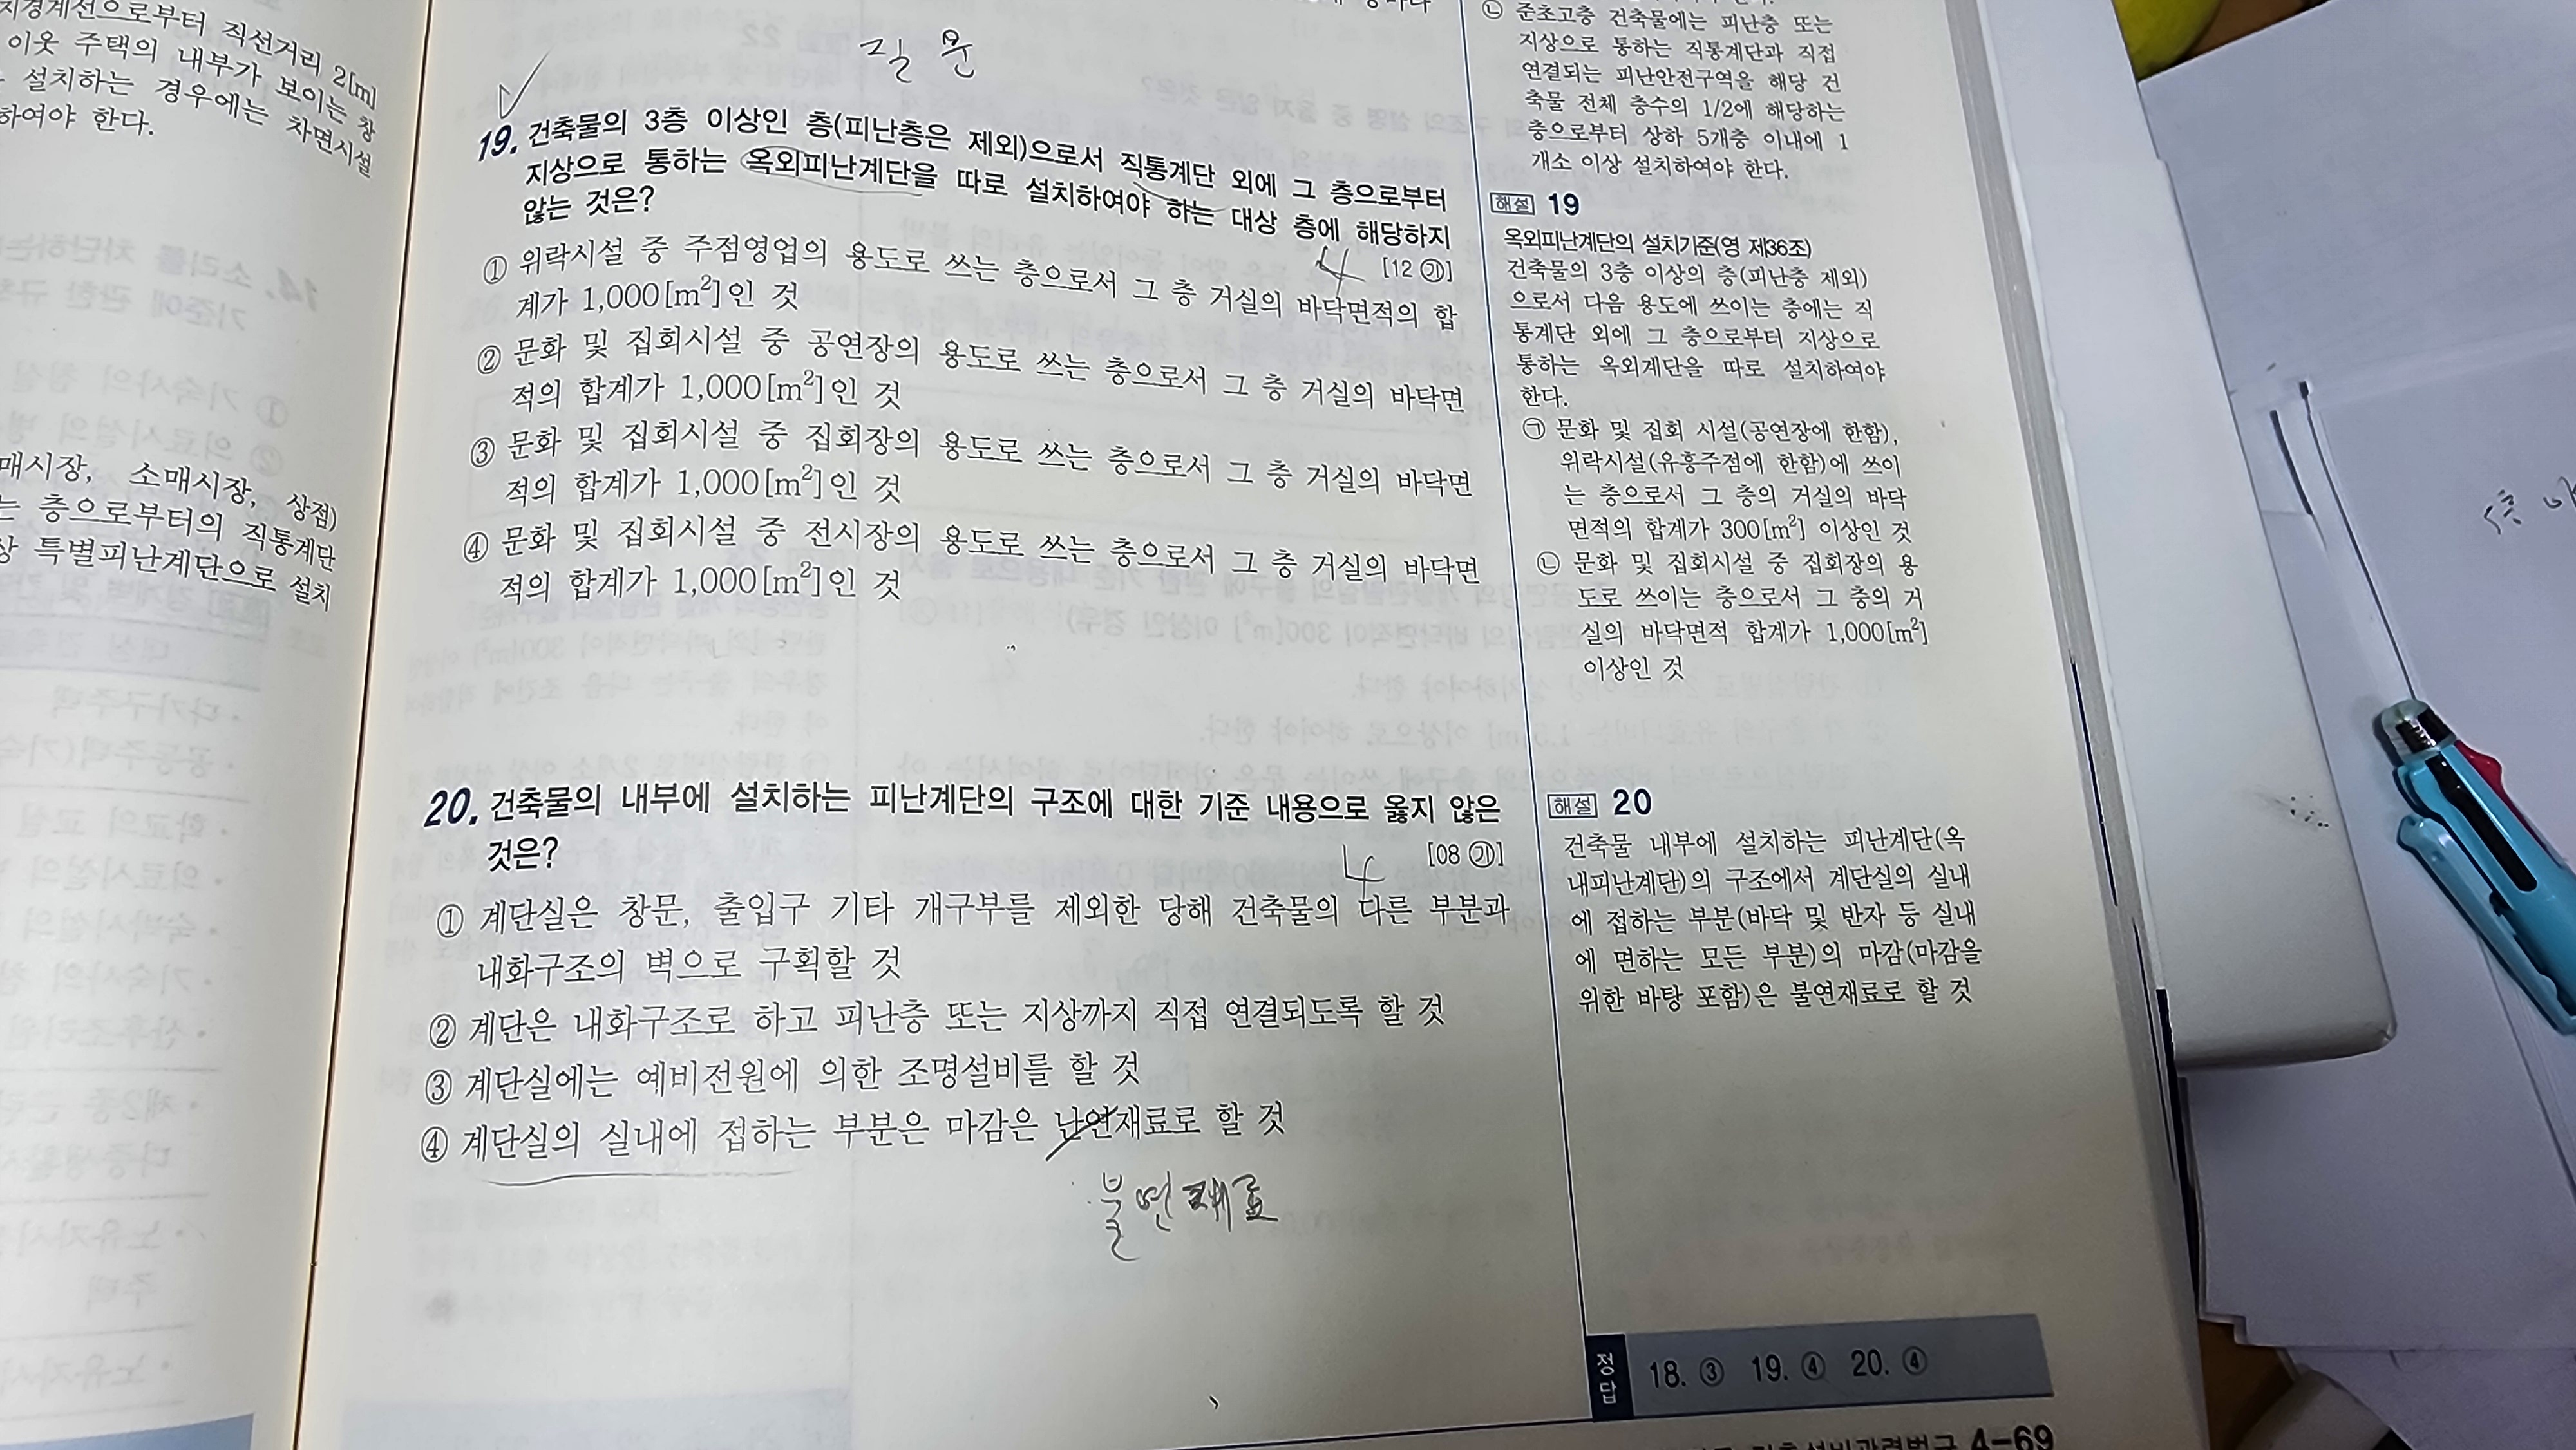 지경계선으로부터 직선거리 2[m]
이웃 주택의 내부가 보이는 창
설치하는 경우에는 차면시설
하여야 한다.
매시장, 소매시장, 상점)
는 층으로부터의 직통계단
상 특별피난계단으로 설치
질문
19. 건축물의 3층 이상인 층(피난층은 제외)으로서 직통계단 외에 그 층으로부터
지상으로 통하는 옥외피난계단을 따로 설치하여야 하는 대상 층에 해당하지
않는 것은?
4 [12 ㉮]
① 위락시설 중 주점영업의 용도로 쓰는 층으로서 그 층 거실의 바닥면적의 합
계가 1,000[m²]인 것
② 문화 및 집회시설 중 공연장의 용도로 쓰는 층으로서 그 층 거실의 바닥면
적의 합계가 1,000[m²]인 것
③ 문화 및 집회시설 중 집회장의 용도로 쓰는 층으로서 그 층 거실의 바닥면
적의 합계가 1,000[m²]인 것
④ 문화 및 집회시설 중 전시장의 용도로 쓰는 층으로서 그 층 거실의 바닥면
적의 합계가 1,000[m²]인 것
20. 건축물의 내부에 설치하는 피난계단의 구조에 대한 기준 내용으로 옳지 않은
것은?
4 [08 ㉮]
① 계단실은 창문, 출입구 기타 개구부를 제외한 당해 건축물의 다른 부분과
내화구조의 벽으로 구획할 것
② 계단은 내화구조로 하고 피난층 또는 지상까지 직접 연결되도록 할 것
③ 계단실에는 예비전원에 의한 조명설비를 할 것
④ 계단실의 실내에 접하는 부분은 마감은 난연재료로 할 것
불연재료
㉡ 준초고층 건축물에는 피난층 또는
지상으로 통하는 직통계단과 직접
연결되는 피난안전구역을 해당 건
축물 전체 층수의 1/2에 해당하는
층으로부터 상하 5개층 이내에 1
개소 이상 설치하여야 한다.
해설 19
옥외피난계단의 설치기준(영 제36조)
건축물의 3층 이상의 층(피난층 제외)
으로서 다음 용도에 쓰이는 층에는 직
통계단 외에 그 층으로부터 지상으로
통하는 옥외계단을 따로 설치하여야
한다.
㉠ 문화 및 집회 시설(공연장에 한함),
위락시설(유흥주점에 한함)에 쓰이
는 층으로서 그 층의 거실의 바닥
면적의 합계가 300[m²] 이상인 것
㉡ 문화 및 집회시설 중 집회장의 용
도로 쓰이는 층으로서 그 층의 거
실의 바닥면적 합계가 1,000[m²]
이상인 것
해설 20
건축물 내부에 설치하는 피난계단(옥
내피난계단)의 구조에서 계단실의 실내
에 접하는 부분(바닥 및 반자 등 실내
에 면하는 모든 부분)의 마감(마감을
위한 바탕 포함)은 불연재료로 할 것
정답 18. ③ 19. ④ 20. ④
4-69